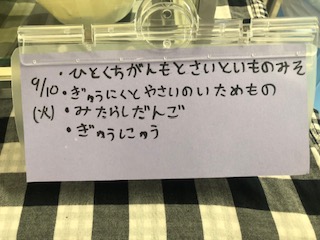 ・ひとくちがんもとさいといものみそ
9/10 ・ぎゅうにくとやさいのいためもの
(火) ・みたらしだんご
・ぎゅうにゅう